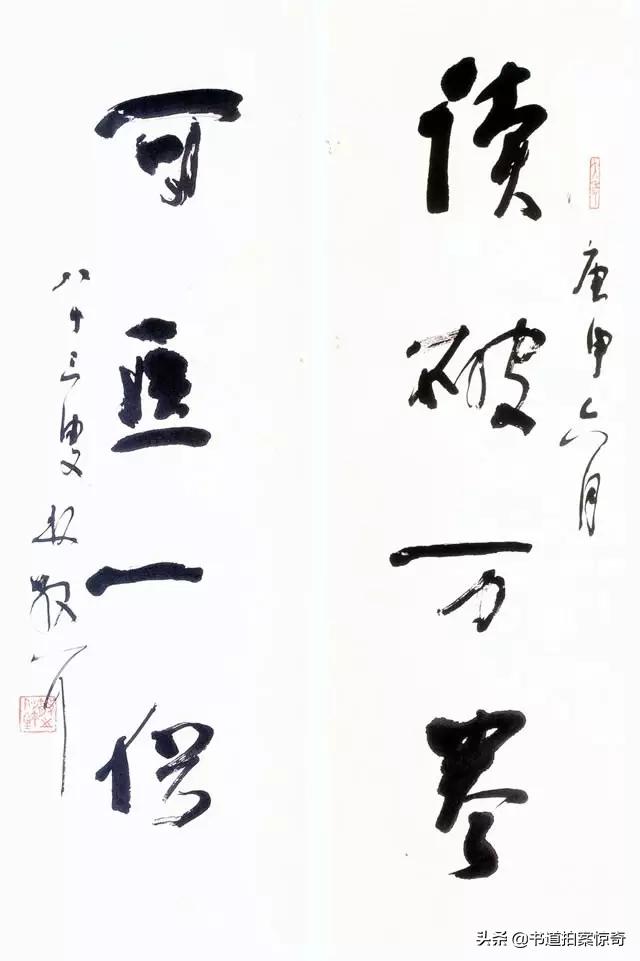 庚申六月
读破万卷
可医一俗
八十三叟林散耳
头条 @书道拍案惊奇